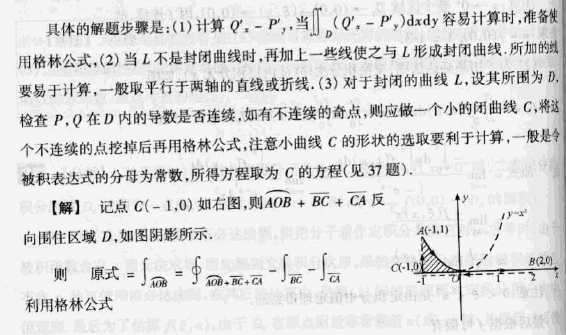 具体的解题步骤是:(1) 计算 Q'ₓ − P'ᵧ,当∬_D (Q'ₓ − P'ᵧ)dxdy 容易计算时,准备使
用格林公式,(2) 当 L 不是封闭曲线时,再加上一些线使之与 L 形成封闭曲线.所加的线
要易于计算,一般取平行于两轴的直线或折线.(3) 对于封闭的曲线 L,设其所围为 D,
检查 P,Q 在 D 内的导数是否连续,如有不连续的奇点,则应做一个小的闭曲线 C,将这
个不连续的点挖掉后再用格林公式,注意小曲线 C 的形状的选取要利于计算,一般是令
被积表达式的分母为常数,所得方程取为 C 的方程(见 37 题).
【解】 记点 C(−1,0) 如右图,则 AOB + BC + CA 反
向围住区域 D,如图阴影所示.
则 原式 = ∫_AOB = ∮_AOB+BC+CA − ∫_BC − ∫_CA
利用格林公式
y
y=x²
A(-1,1)
C(-1,0)
B(2,0)
-1
2